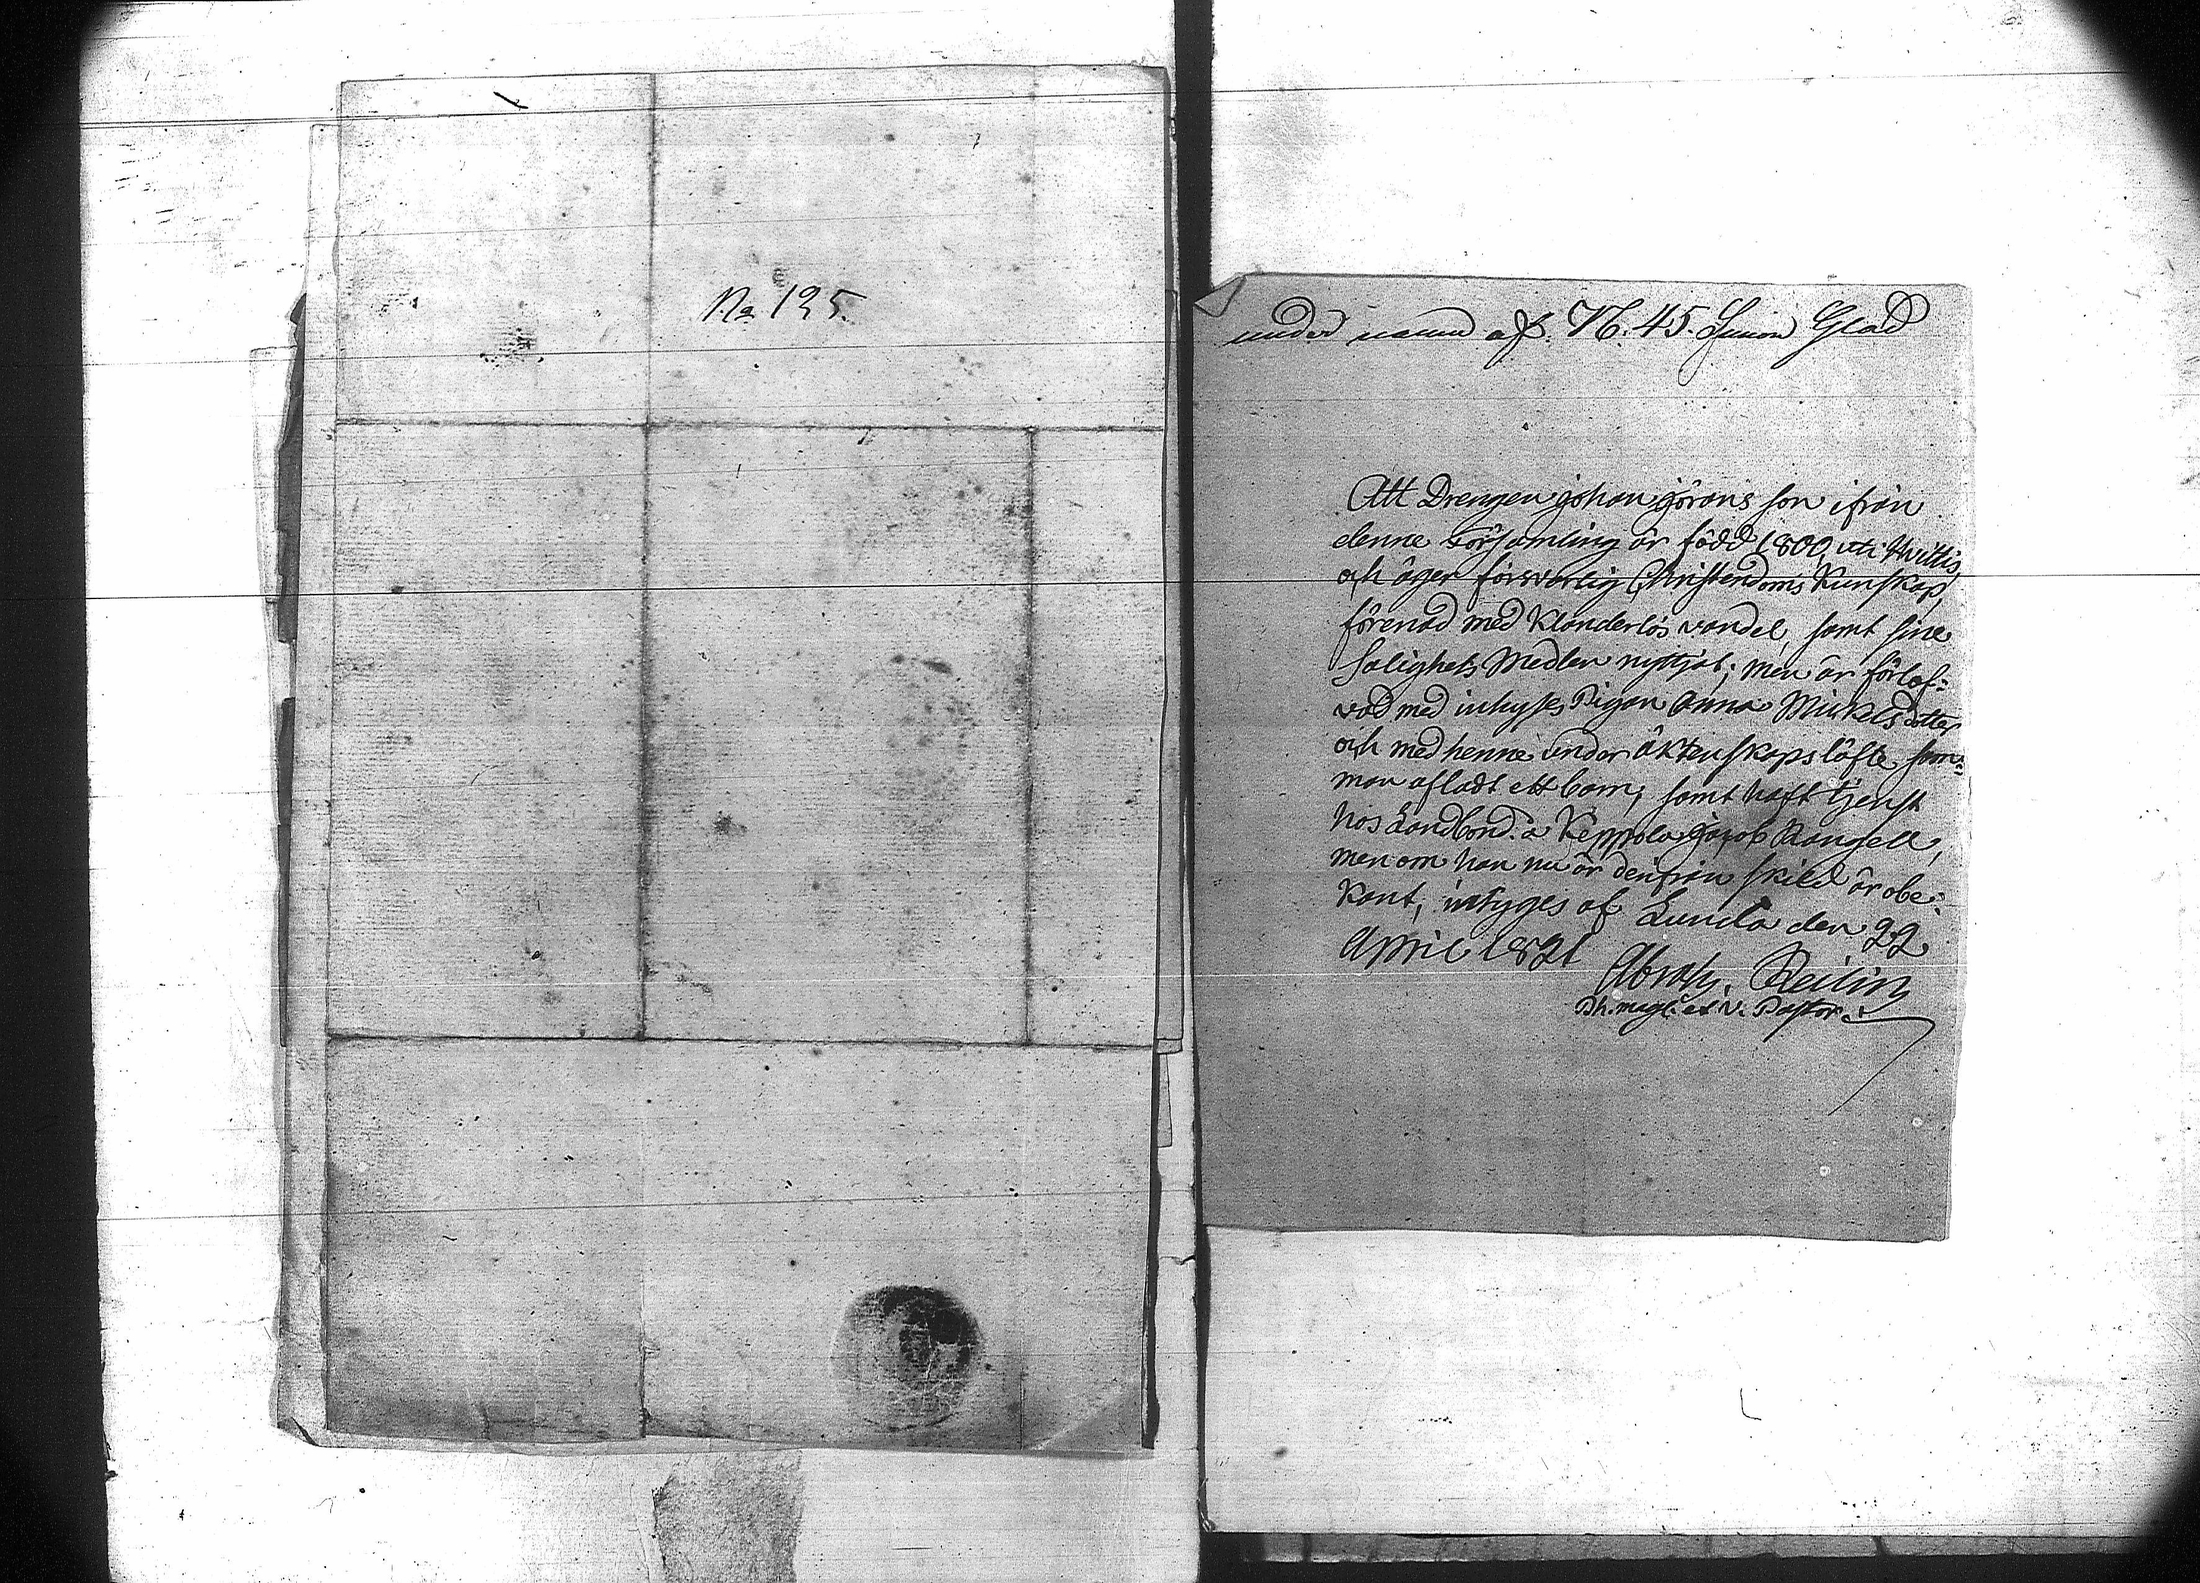 No 125.
under namn af. N. 45. Simon Glad
Att Drengen johan jörans son ifrån
denne Församling är född 1800, uti Hvittis,
och äger försvarlig Christendoms Kunskap,
förenad med Klanderlös vandel, samt sine
Salighets Medlen nyttjat; men är förlof-
vad med inhyses Pigan Anna Mickelsdotter
och med henne under äktenskaps löfte sam-
man afladt ett barn, samt haft tjenst
hos Landbond. a Keppola jacob Rangell,
men om han nu är denfrån skild är obe-
kant, intyges af Lunda den 22
April 1821
Abrah. Reilin
Ph. mag. et V. Pastor.